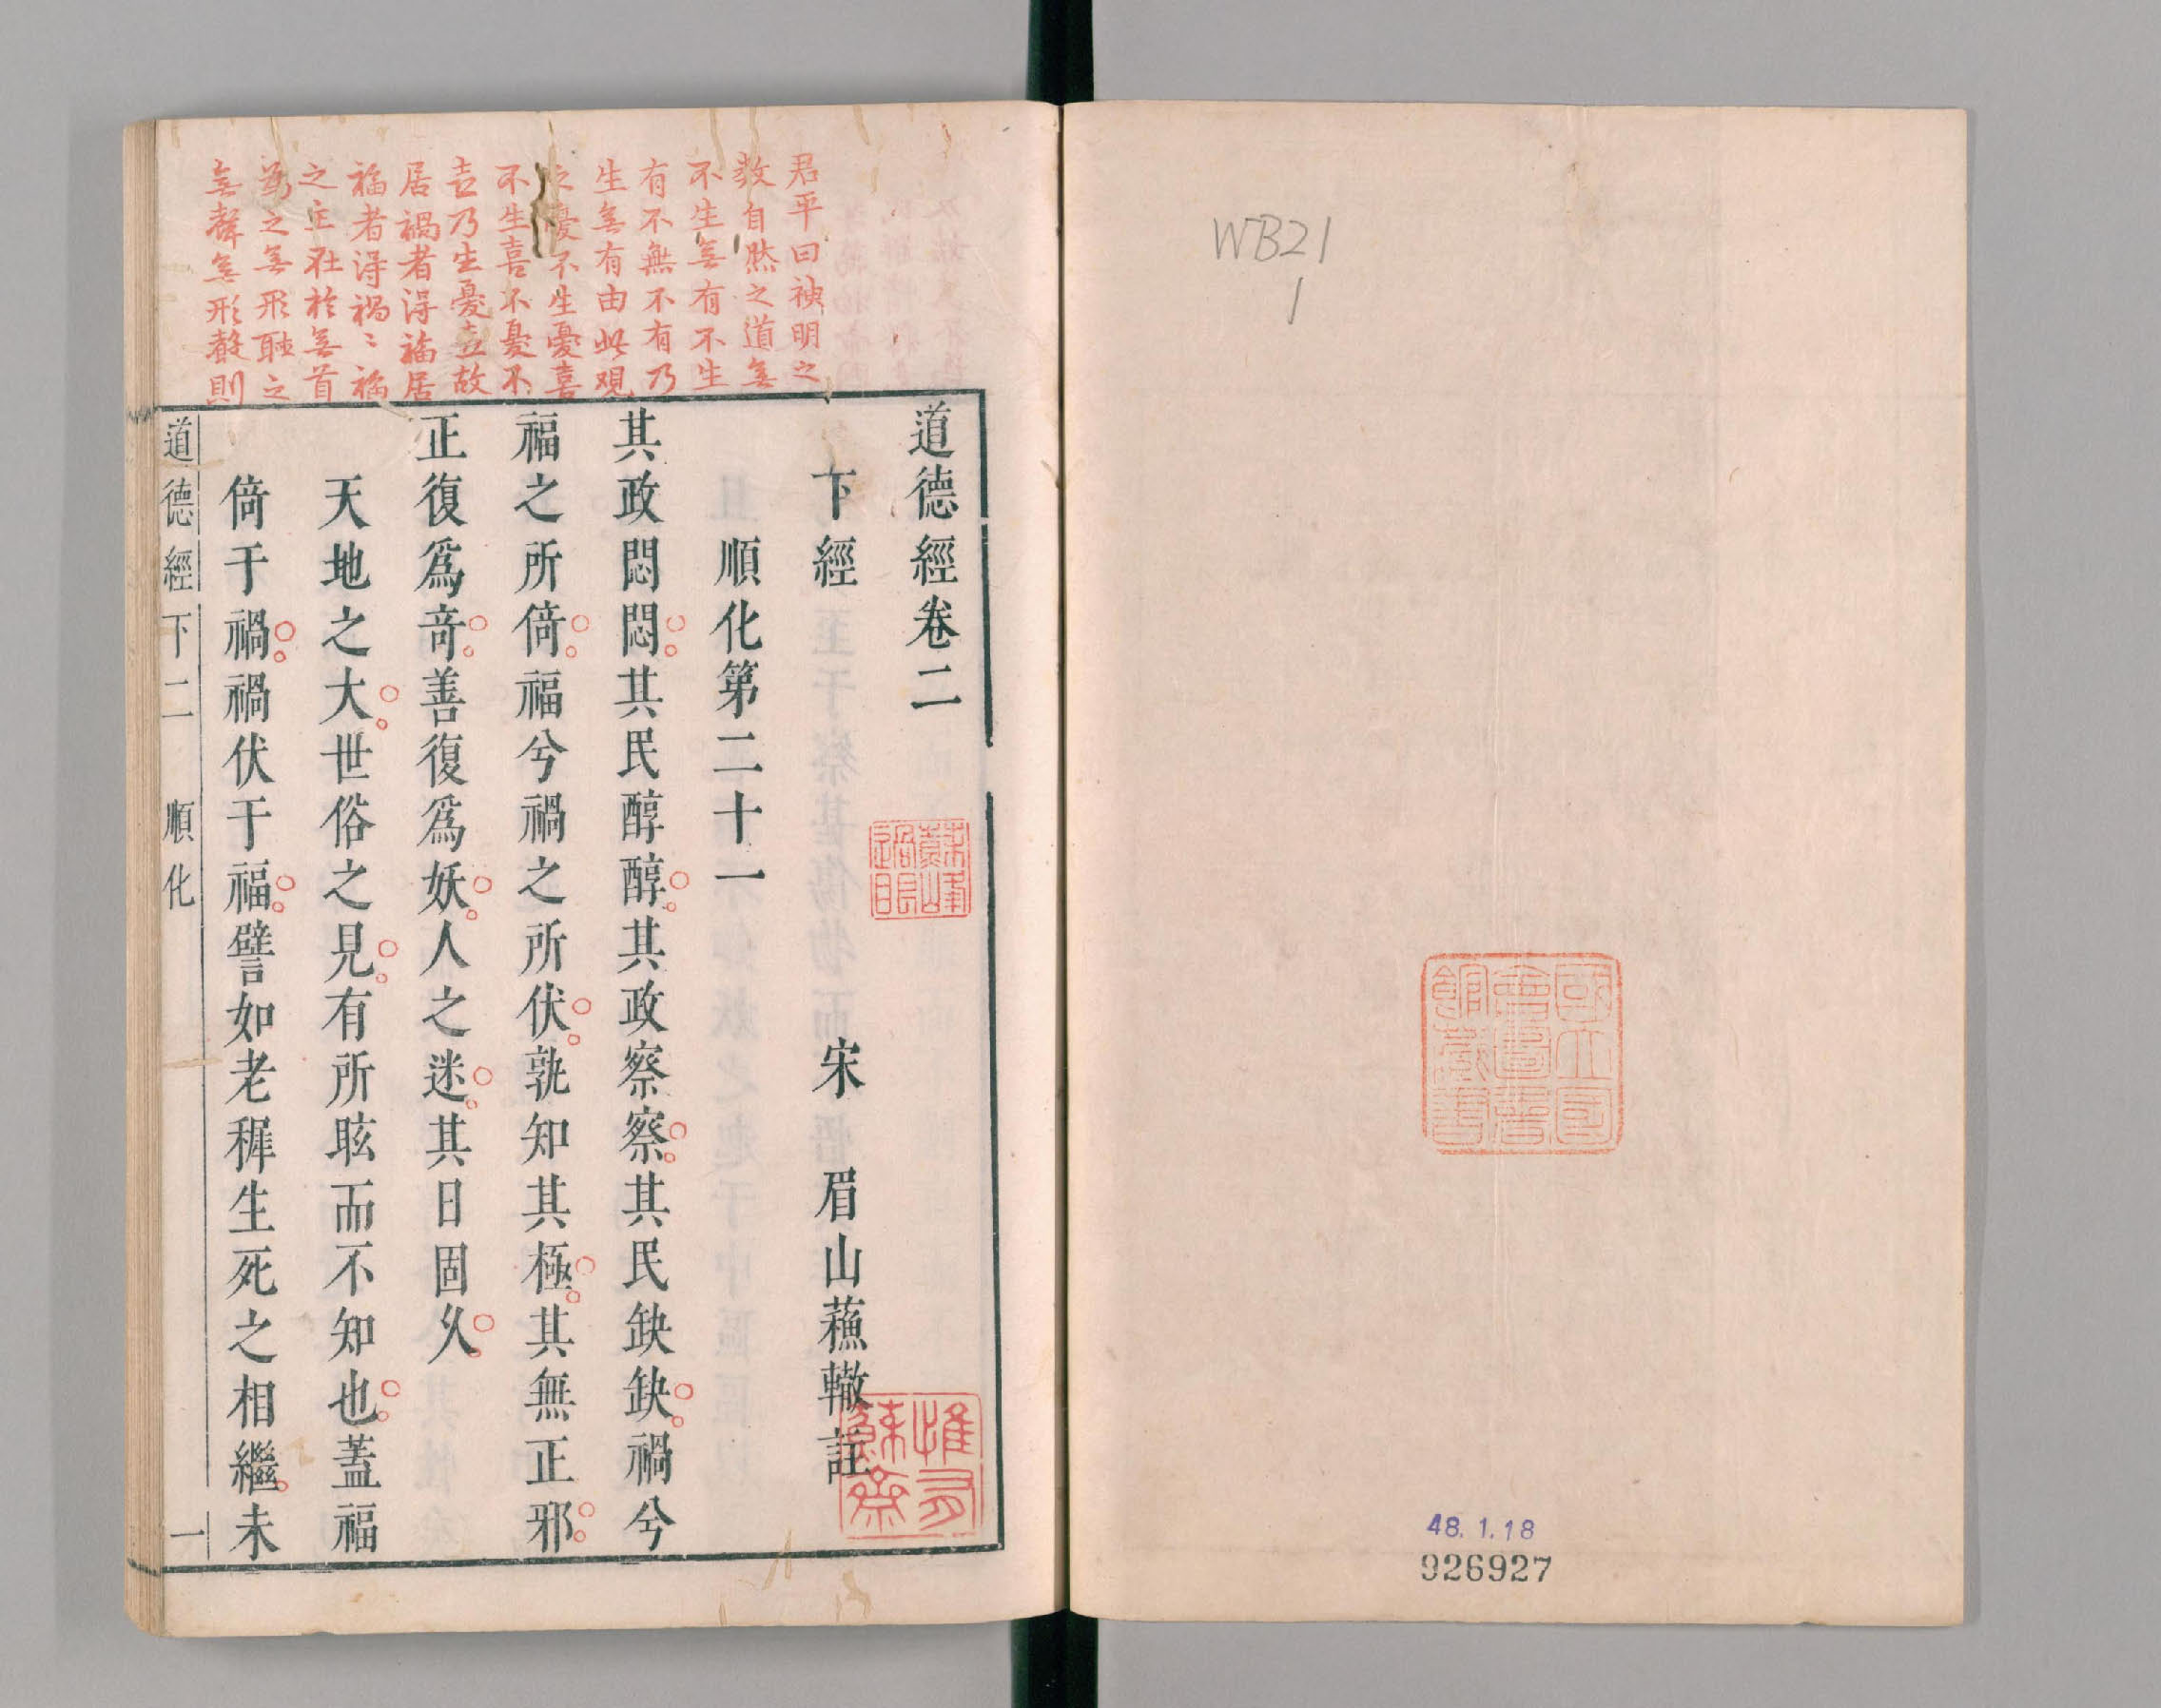 WB21
1
國立國
會圖書
館藏書
48.1.18
926927
君平曰神明之
教自然之道無
不生無有不生
有不無不有乃
生無有由此觀
之憂不生憂喜
不生喜不憂不
喜乃生憂喜故
居禍者得福居
福者得禍〻福
之主在於無首
為之無形聽之
無聲無形聲則
道德經卷二
下經
宋
眉山蘓轍註
順化第二十一
其政悶悶其民醇醇其政察察其民缺缺禍兮
福之所倚福兮禍之所伏孰知其極其無正邪
正復爲竒善復爲妖人之迷其日固久
天地之大世俗之見有所眩而不知也蓋福
倚于禍禍伏于福譬如老穉生死之相繼未
道德經下二
順化
一
蘇峰
過眼